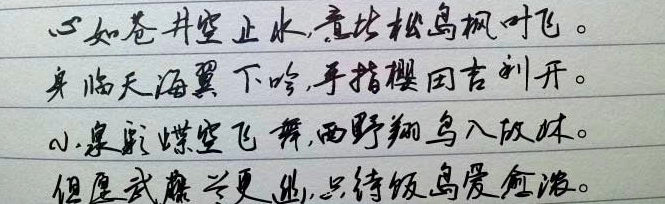 心如苍井空止水,意比松岛枫叶飞。
身临天海翼下吟,手指樱田吉利开。
小泉彩蝶空飞舞,西野翔鸟入故林。
但愿武藤兰更幽,只待饭岛爱愈浓。